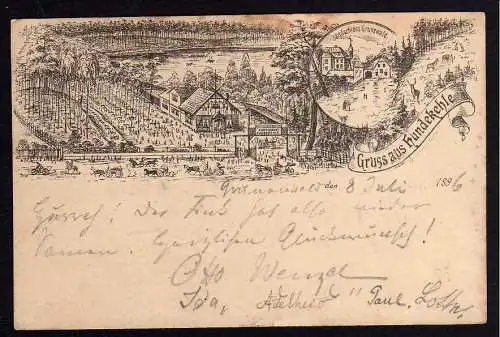 Jagdschloss Grunewald
Gruss aus Hundekehle
Grunewald den 8 Juli 1896
Hurrah! Der Fink hat also wieder
Samen. Herzlichen Glückwunsch!
Otto Wenzel
Ida, Adelheid " Paul.